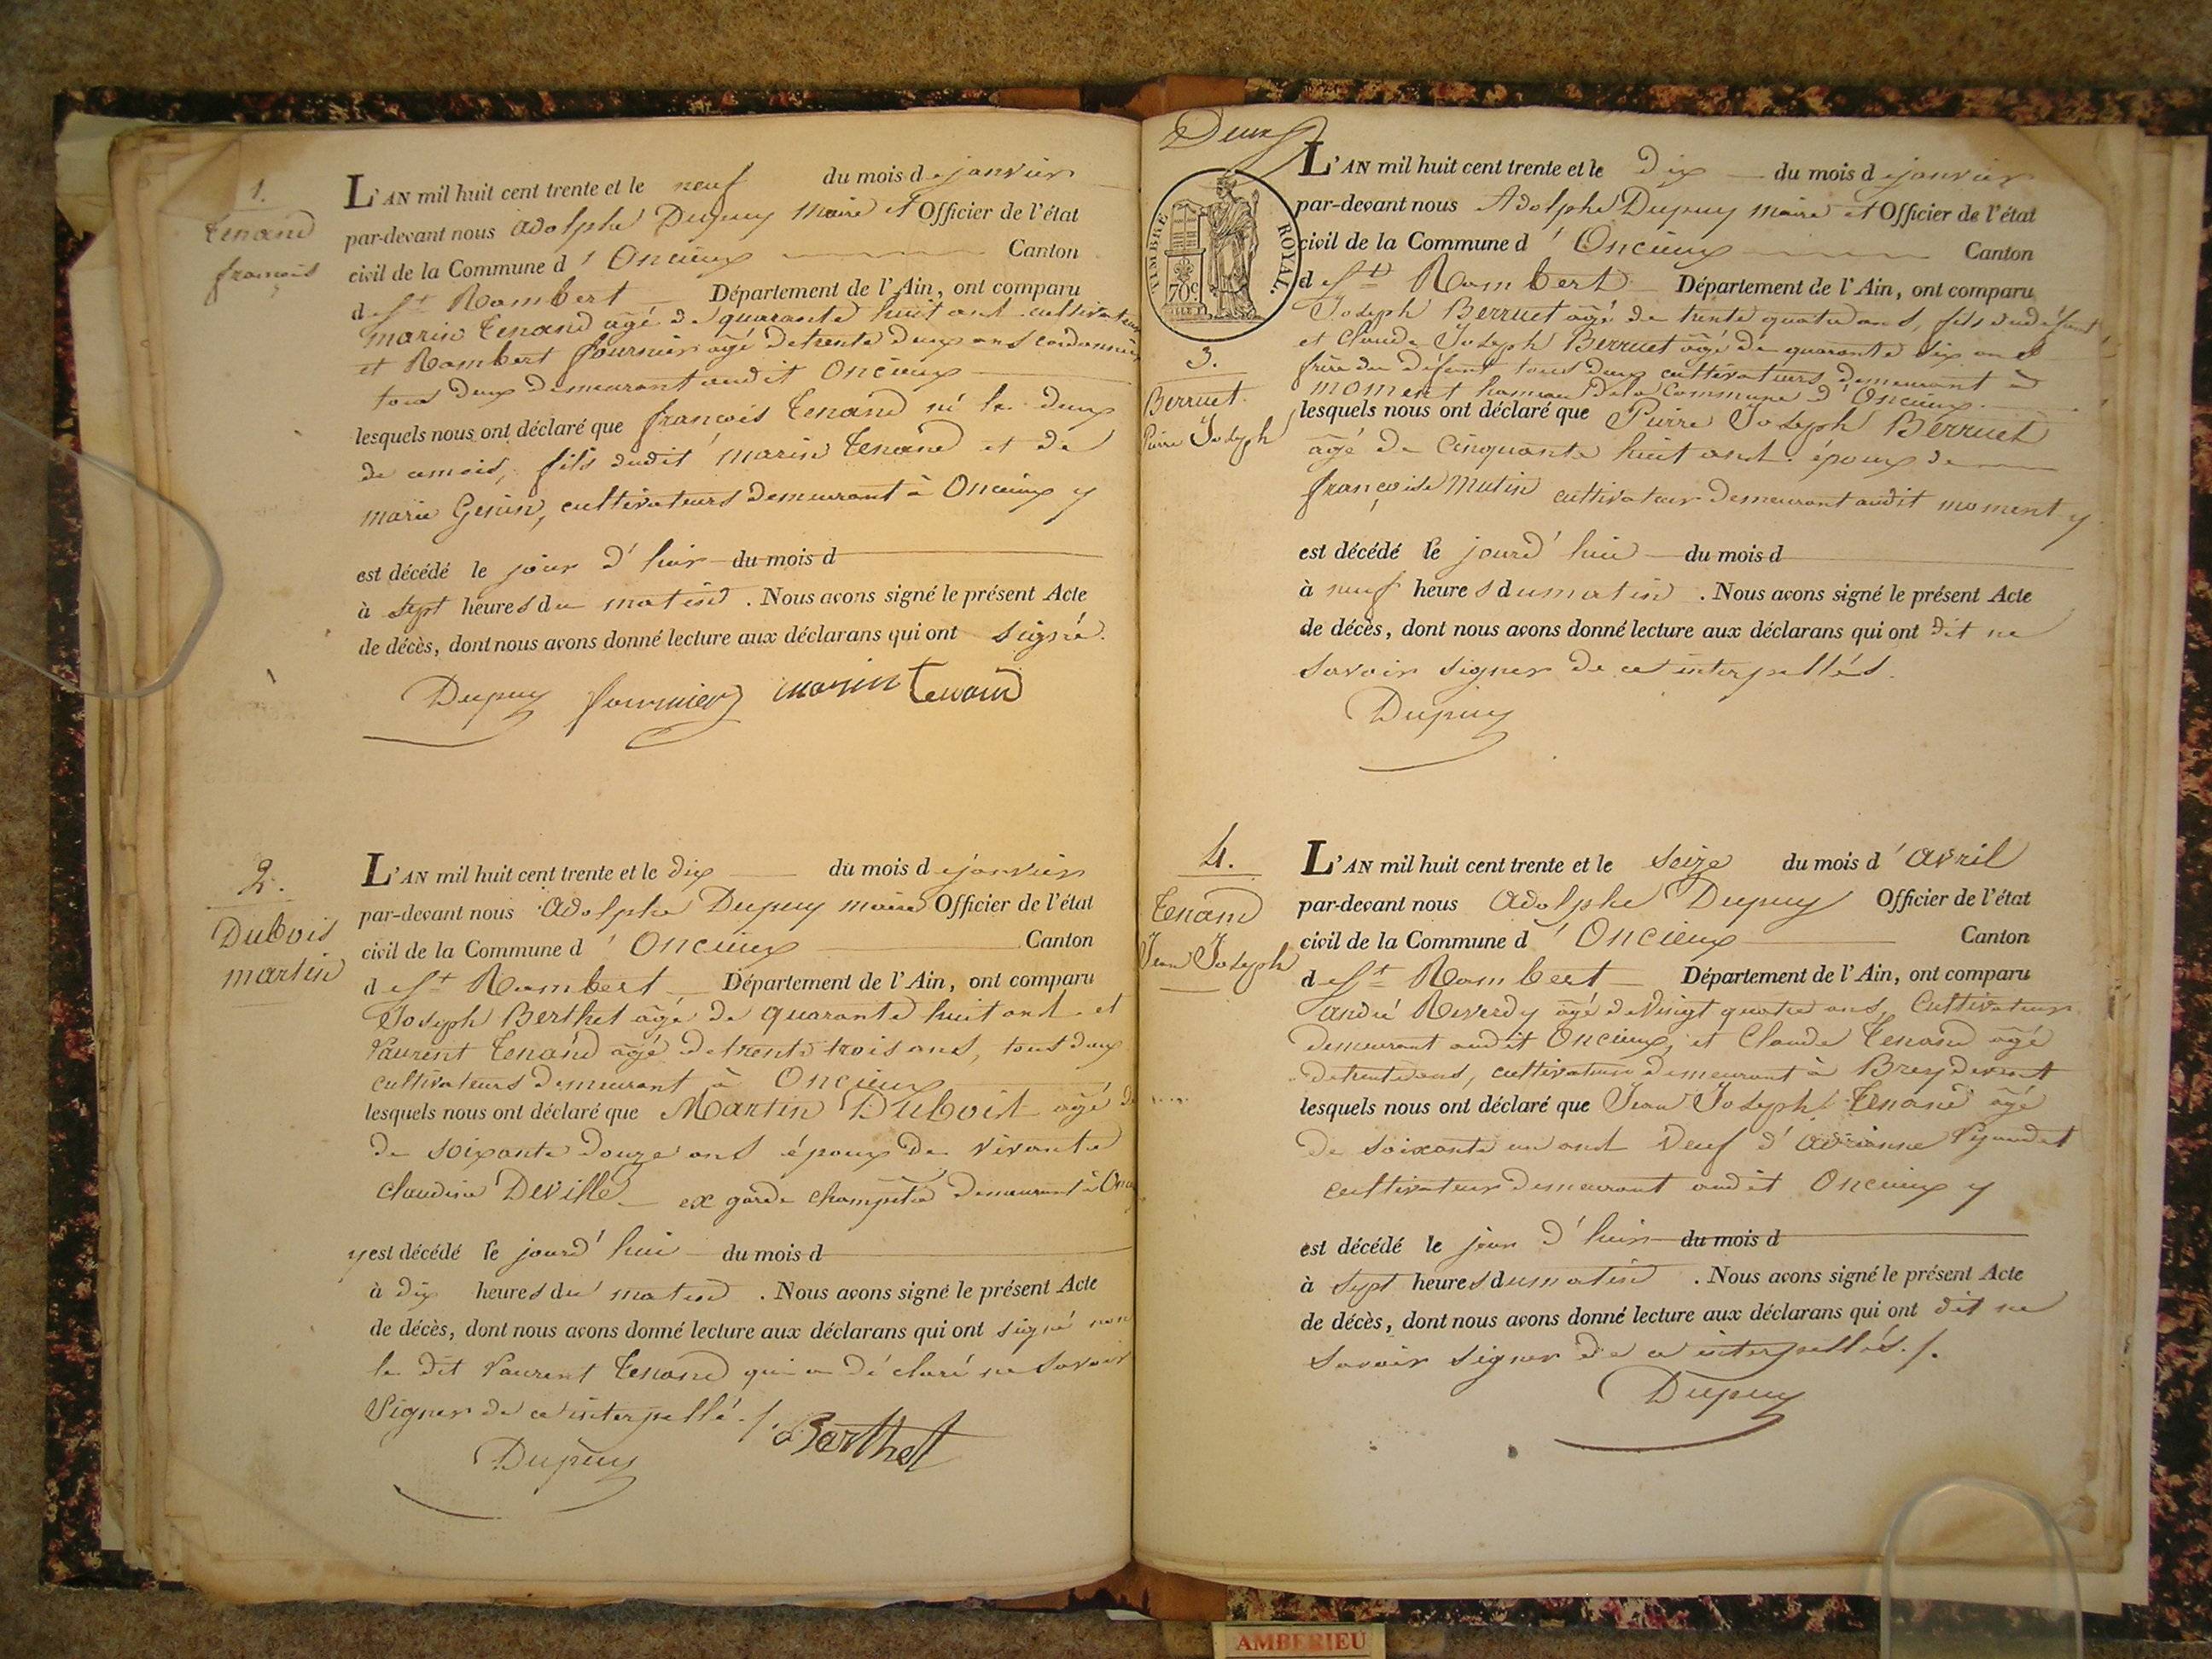 1.
Tenand
françois
L'AN mil huit cent trente et le neuf du mois de janvier
par-devant nous Adolphe Dupuy Maire et Officier de l'état
civil de la Commune d'Oncieux Canton
de St Rambert Département de l'Ain, ont comparu
marin Tenand âgé de quarante huit ans cultivateur
et Rambert fournier âgé de trente deux ans cordonnier
tous deux demeurant audit Oncieux
lesquels nous ont déclaré que françois Tenand né le deux
de ce mois, fils dudit marin Tenand et de
marie Genin, cultivateurs demeurant à Oncieux y
est décédé le jour d'hui du mois d
à sept heures du matin . Nous avons signé le présent Acte
de décès, dont nous avons donné lecture aux déclarans qui ont signé.
Dupuy fournier marin Tenand
2.
Dubois
martin
L'AN mil huit cent trente et le dix du mois de janvier
par-devant nous Adolphe Dupuy maire Officier de l'état
civil de la Commune d'Oncieux Canton
de St Rambert Département de l'Ain, ont comparu
Joseph Berthet âgé de quarante huit ans et
Laurent Tenand âgé de trente trois ans, tous deux
cultivateurs demeurant à Oncieux
lesquels nous ont déclaré que Martin Dubois âgé de
de soixante douze ans époux de vivante
Claudine Deville ex garde champêtre demeurant à
y est décédé le jourd'hui du mois d
à dix heures du matin . Nous avons signé le présent Acte
de décès, dont nous avons donné lecture aux déclarans qui ont signé non
le dit Laurent Tenand qui a déclaré ne savoir
signer de ce interpellé ./.
Dupuy Berthet
Deux
TIMBRE ROYAL.
70c
3.
Berruet
Pierre Joseph
L'AN mil huit cent trente et le dix du mois de janvier
par-devant nous Adolphe Dupuy maire et Officier de l'état
civil de la Commune d'Oncieux Canton
de St Rambert Département de l'Ain, ont comparu
Joseph Berruet âgé de trente quatre ans, fils du défunt
et Claude Joseph Berruet âgé de quarante six ans
frère du défunt tous deux cultivateurs demeurant à
moment hameau de la Commune d'Oncieux
lesquels nous ont déclaré que Pierre Joseph Berruet
âgé de cinquante huit ans époux de
françoise Mutin cultivateur demeurant audit moment y
est décédé le jourd'hui du mois d
à neuf heures du matin . Nous avons signé le présent Acte
de décès, dont nous avons donné lecture aux déclarans qui ont dit ne
savoir signer de ce interpellés.
Dupuy
4.
Tenand
Jean Joseph
L'AN mil huit cent trente et le seize du mois d'avril
par-devant nous Adolphe Dupuy Officier de l'état
civil de la Commune d'Oncieux Canton
de St Rambert Département de l'Ain, ont comparu
andré Reverdy âgé de vingt quatre ans, Cultivateur
demeurant audit Oncieux, et Claude Tenand âgé
de trente ans, cultivateur demeurant à
lesquels nous ont déclaré que Jean Joseph Tenand âgé
de soixante un ans veuf d'
cultivateur demeurant audit Oncieux y
est décédé le jour d'hui du mois d
à sept heures du matin . Nous avons signé le présent Acte
de décès, dont nous avons donné lecture aux déclarans qui ont dit ne
savoir signer de ce interpellés ./.
Dupuy
AMBERIEU